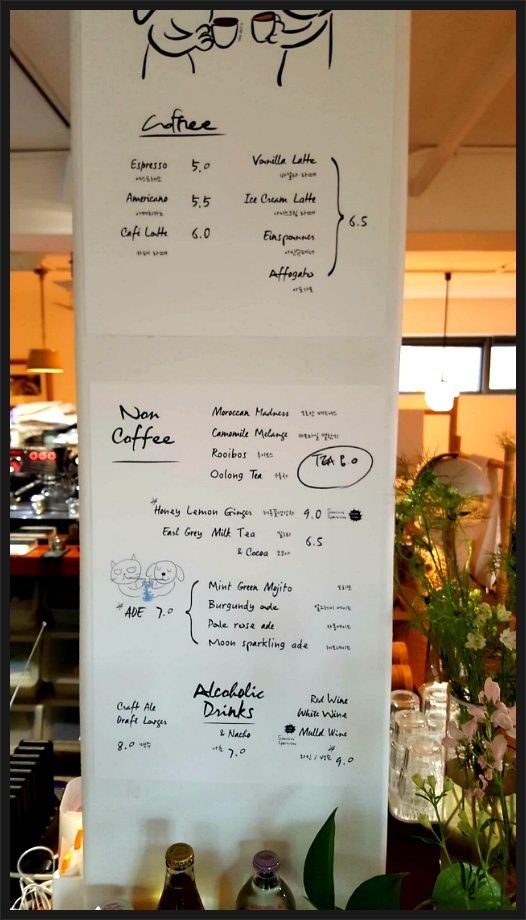 Coffee
Espresso 5.0
에스프레소
Americano 5.5
아메리카노
Café Latte 6.0
카페 라떼
Vanilla Latte
바닐라 라떼
Ice Cream Latte
아이스크림 라떼
Einspanner
아인슈페너
Affogato
아포가토
6.5
Non
Coffee
Moroccan Madness
Camomile Melange
Rooibos
Oolong Tea 우롱차
TEA 8.0
*Honey Lemon Ginger 9.0
Earl Grey Milk Tea 밀크티
& Cocoa 코코아
6.5
* ADE 7.0
Mint Green Mojito 모히또
Burgundy ade
Pale rose ade
Moon sparkling ade
Alcoholic
Drinks
Craft Ale
Draft Larger
8.0 맥주
& Nacho
나쵸 7.0
Red Wine
White Wine
Mulld Wine
와인 / 뱅쇼 9.0